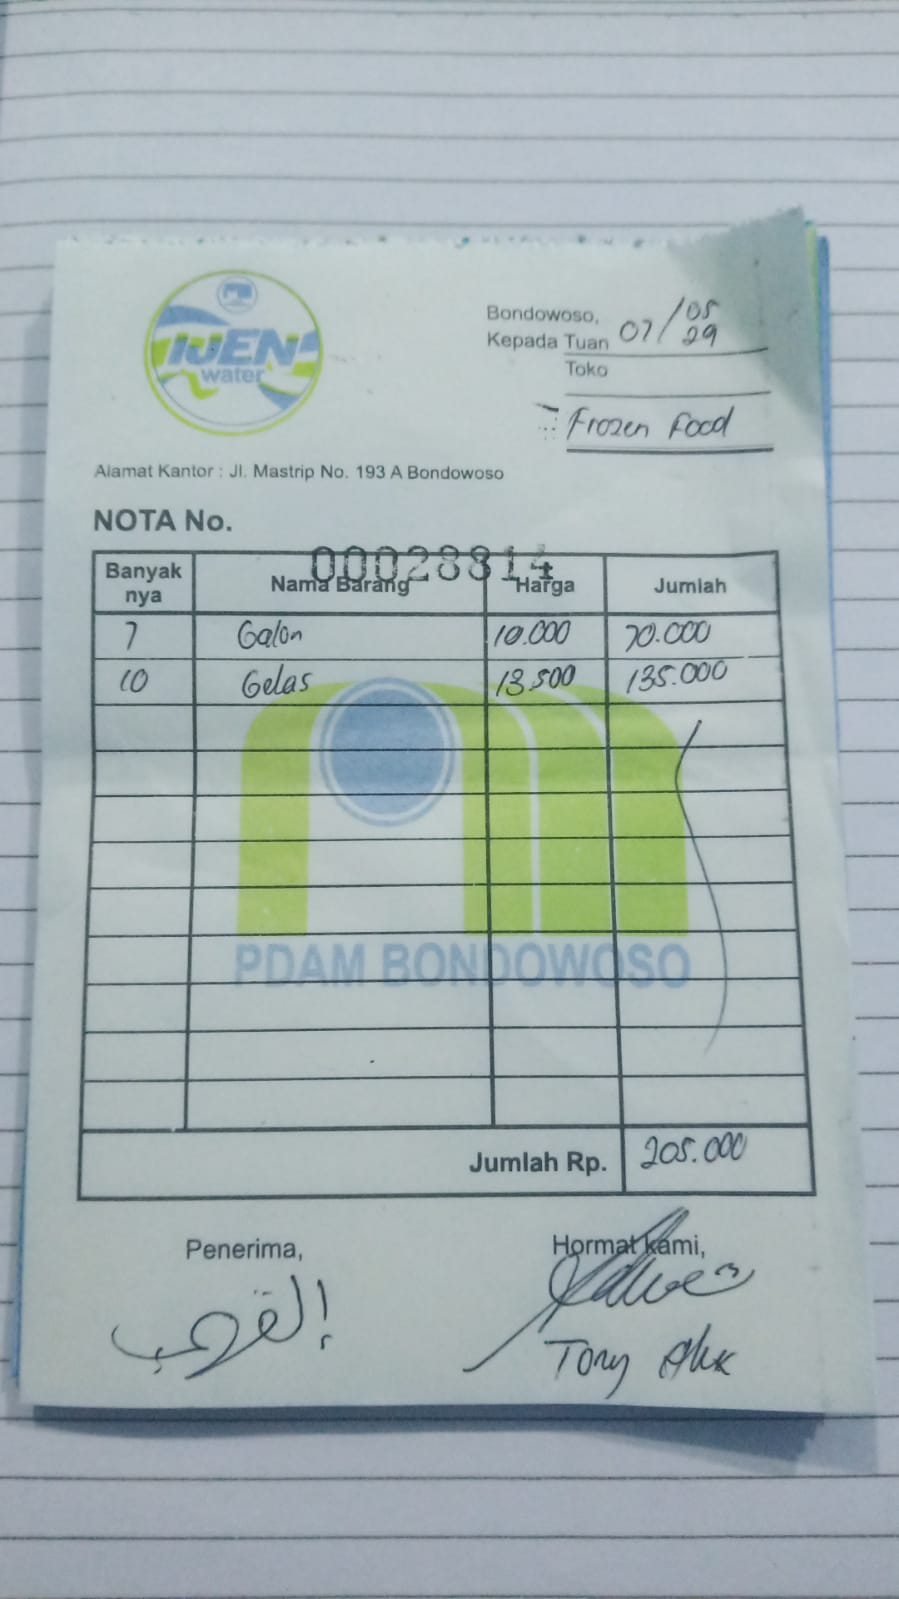 IJEN
water
Bondowoso, 07/05
Kepada Tuan 29
Toko
Frozen Food
Alamat Kantor : Jl. Mastrip No. 193 A Bondowoso
NOTA No.
00028814
Banyak nya Nama Barang Harga Jumlah
7 Galon 10.000 70.000
10 Gelas 13.500 135.000
PDAM BONDOWOSO
Jumlah Rp. 205.000
Penerima, Hormat kami,
Tony